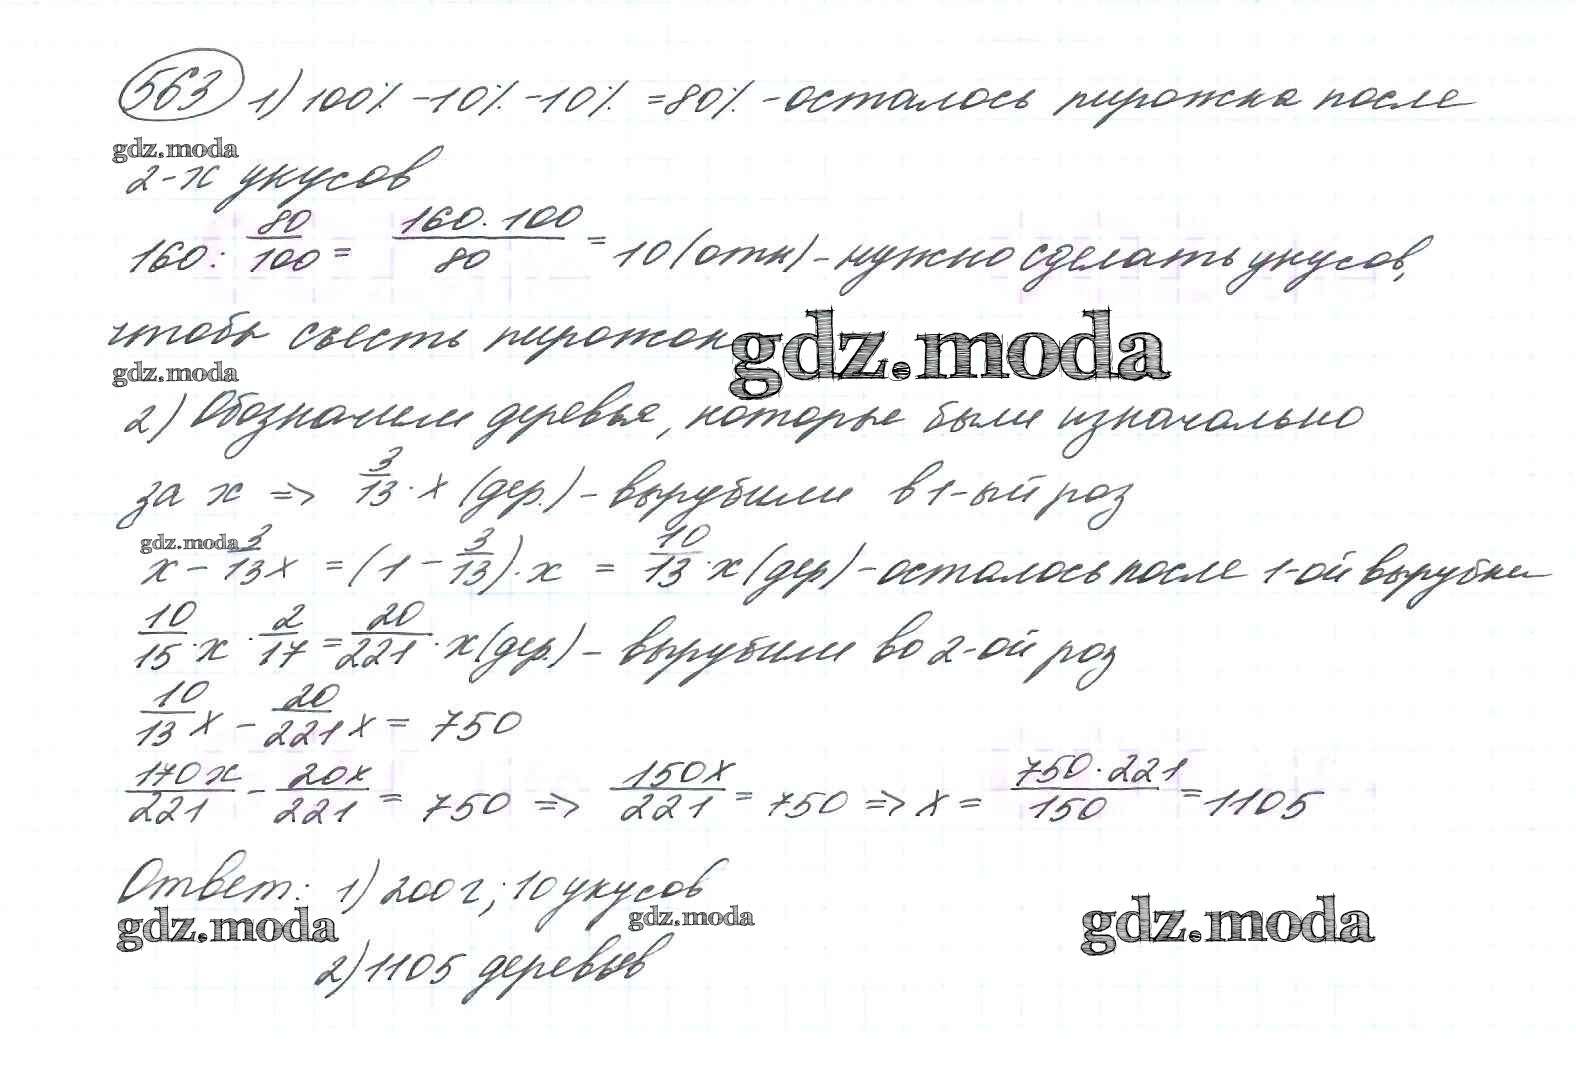 563 1) 100% - 10% - 10% = 80% - осталось пирожка после
gdz.moda
2-х укусов
160 : 80/100 = 160·100/80 = 10 (отк) - нужно сделать укусов,
чтобы съесть пирожок
gdz.moda
gdz.moda
2) Обозначим деревья, которые были изначально
за x => 3/13 · x (дер.) - вырубили в 1-ый роз
gdz.moda
x - 3/13 x = (1 - 3/13) · x = 10/13 · x (дер) - осталось после 1-ой вырубки
10/15 · x · 2/17 = 20/221 · x (дер.) - вырубили во 2-ой роз
10/13 x - 20/221 x = 750
170x/221 - 20x/221 = 750 => 150x/221 = 750 => x = 750·221/150 = 1105
Ответ: 1) 200 г; 10 укусов
gdz.moda gdz.moda gdz.moda
2) 1105 деревьев